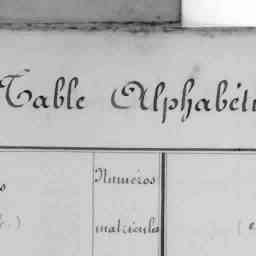 Table Alphabéti
Numéros
matricules